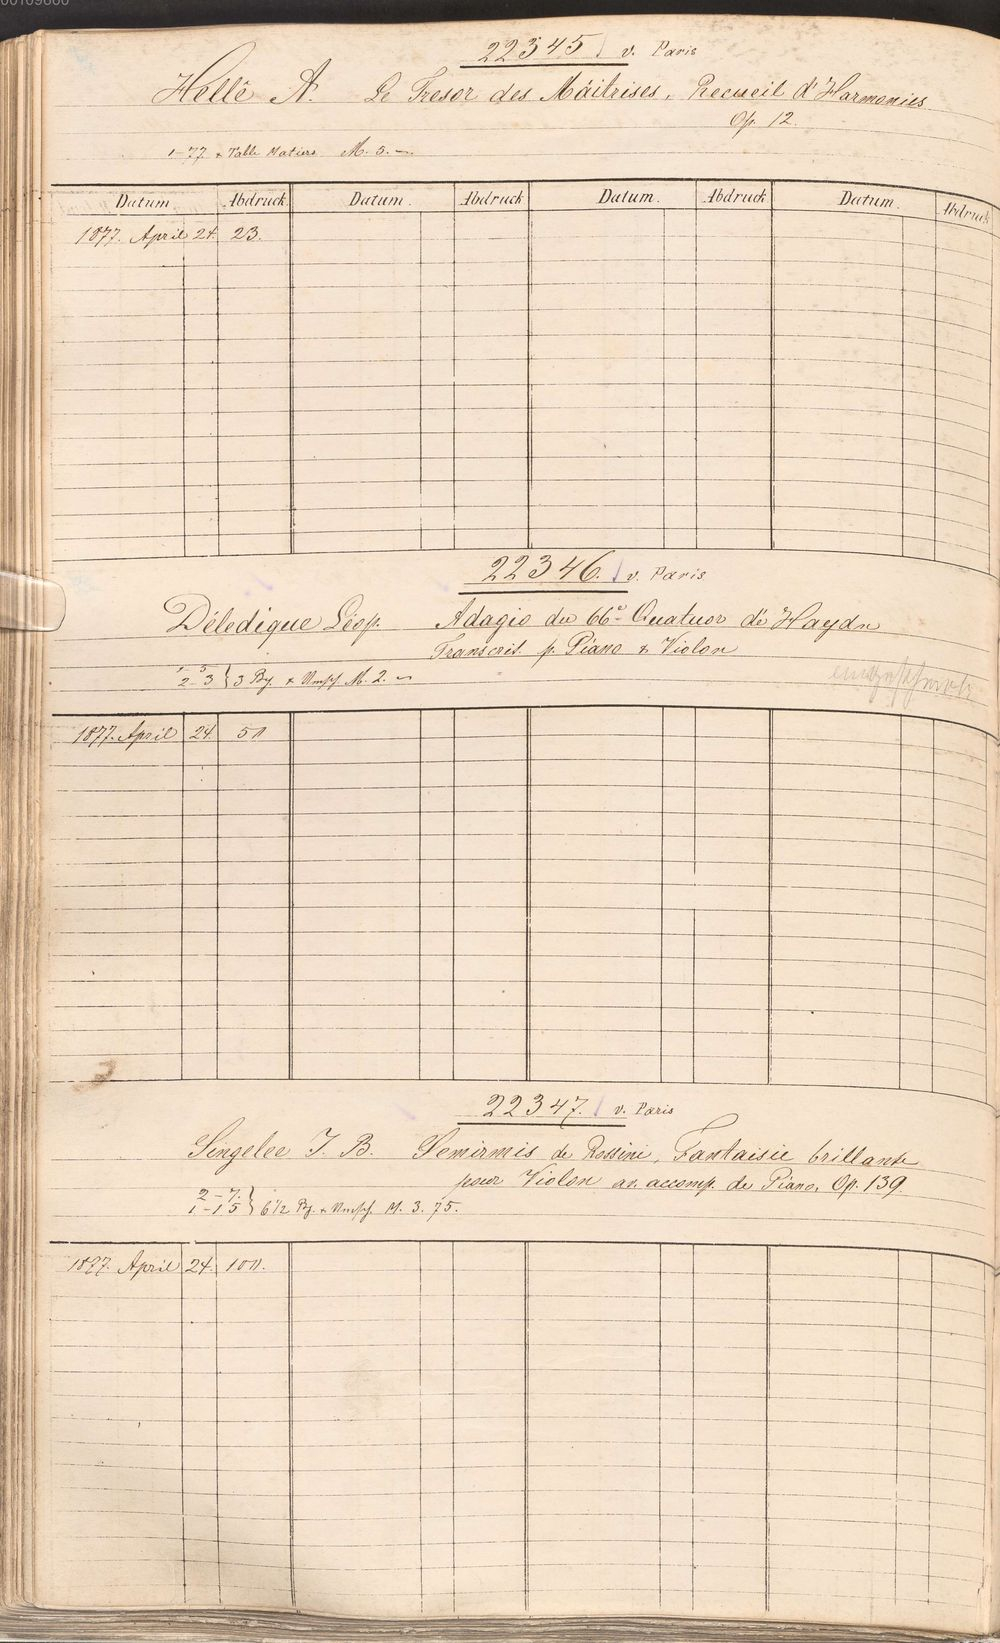 22345 v. Paris
Hellé A. Le Tresor des Maîtrises, Recueil d'Harmonies
Op. 12.
1-77 & Table Matiers M. 5. –
Datum Abdruck Datum. Abdruck Datum. Abdruck Datum. Abdruck
1877. April 24. 23.
22346. v. Paris
Déledique Léop. Adagio du 66e Quatuor de Haydn
Transcrit p. Piano & Violon
1 3
2-3 } 3 Bg. & Umsch. M. 2. –
1877. April 24. 50
22347. v. Paris
Singelee J. B. Semirmis de Rossini, Fantaisie brillante
pour Violon av. accomp. de Piano, Op. 139.
2-7.
1-15 } 6 1/2 Bg. & Umsch. M. 3. 75.
1877. April 24. 100.